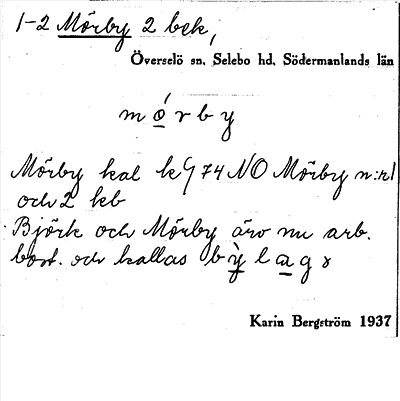 1-2 Mörby 2 bck,
Överselö sn, Selebo hd, Södermanlands län
mo̲´rby
Mörby kal k 74 NO Mörby n:r1
och 2 kb
Björk och Mörby äro nu arb.
bost. och kallas bỳ̲la̲gs
Karin Bergström 1937